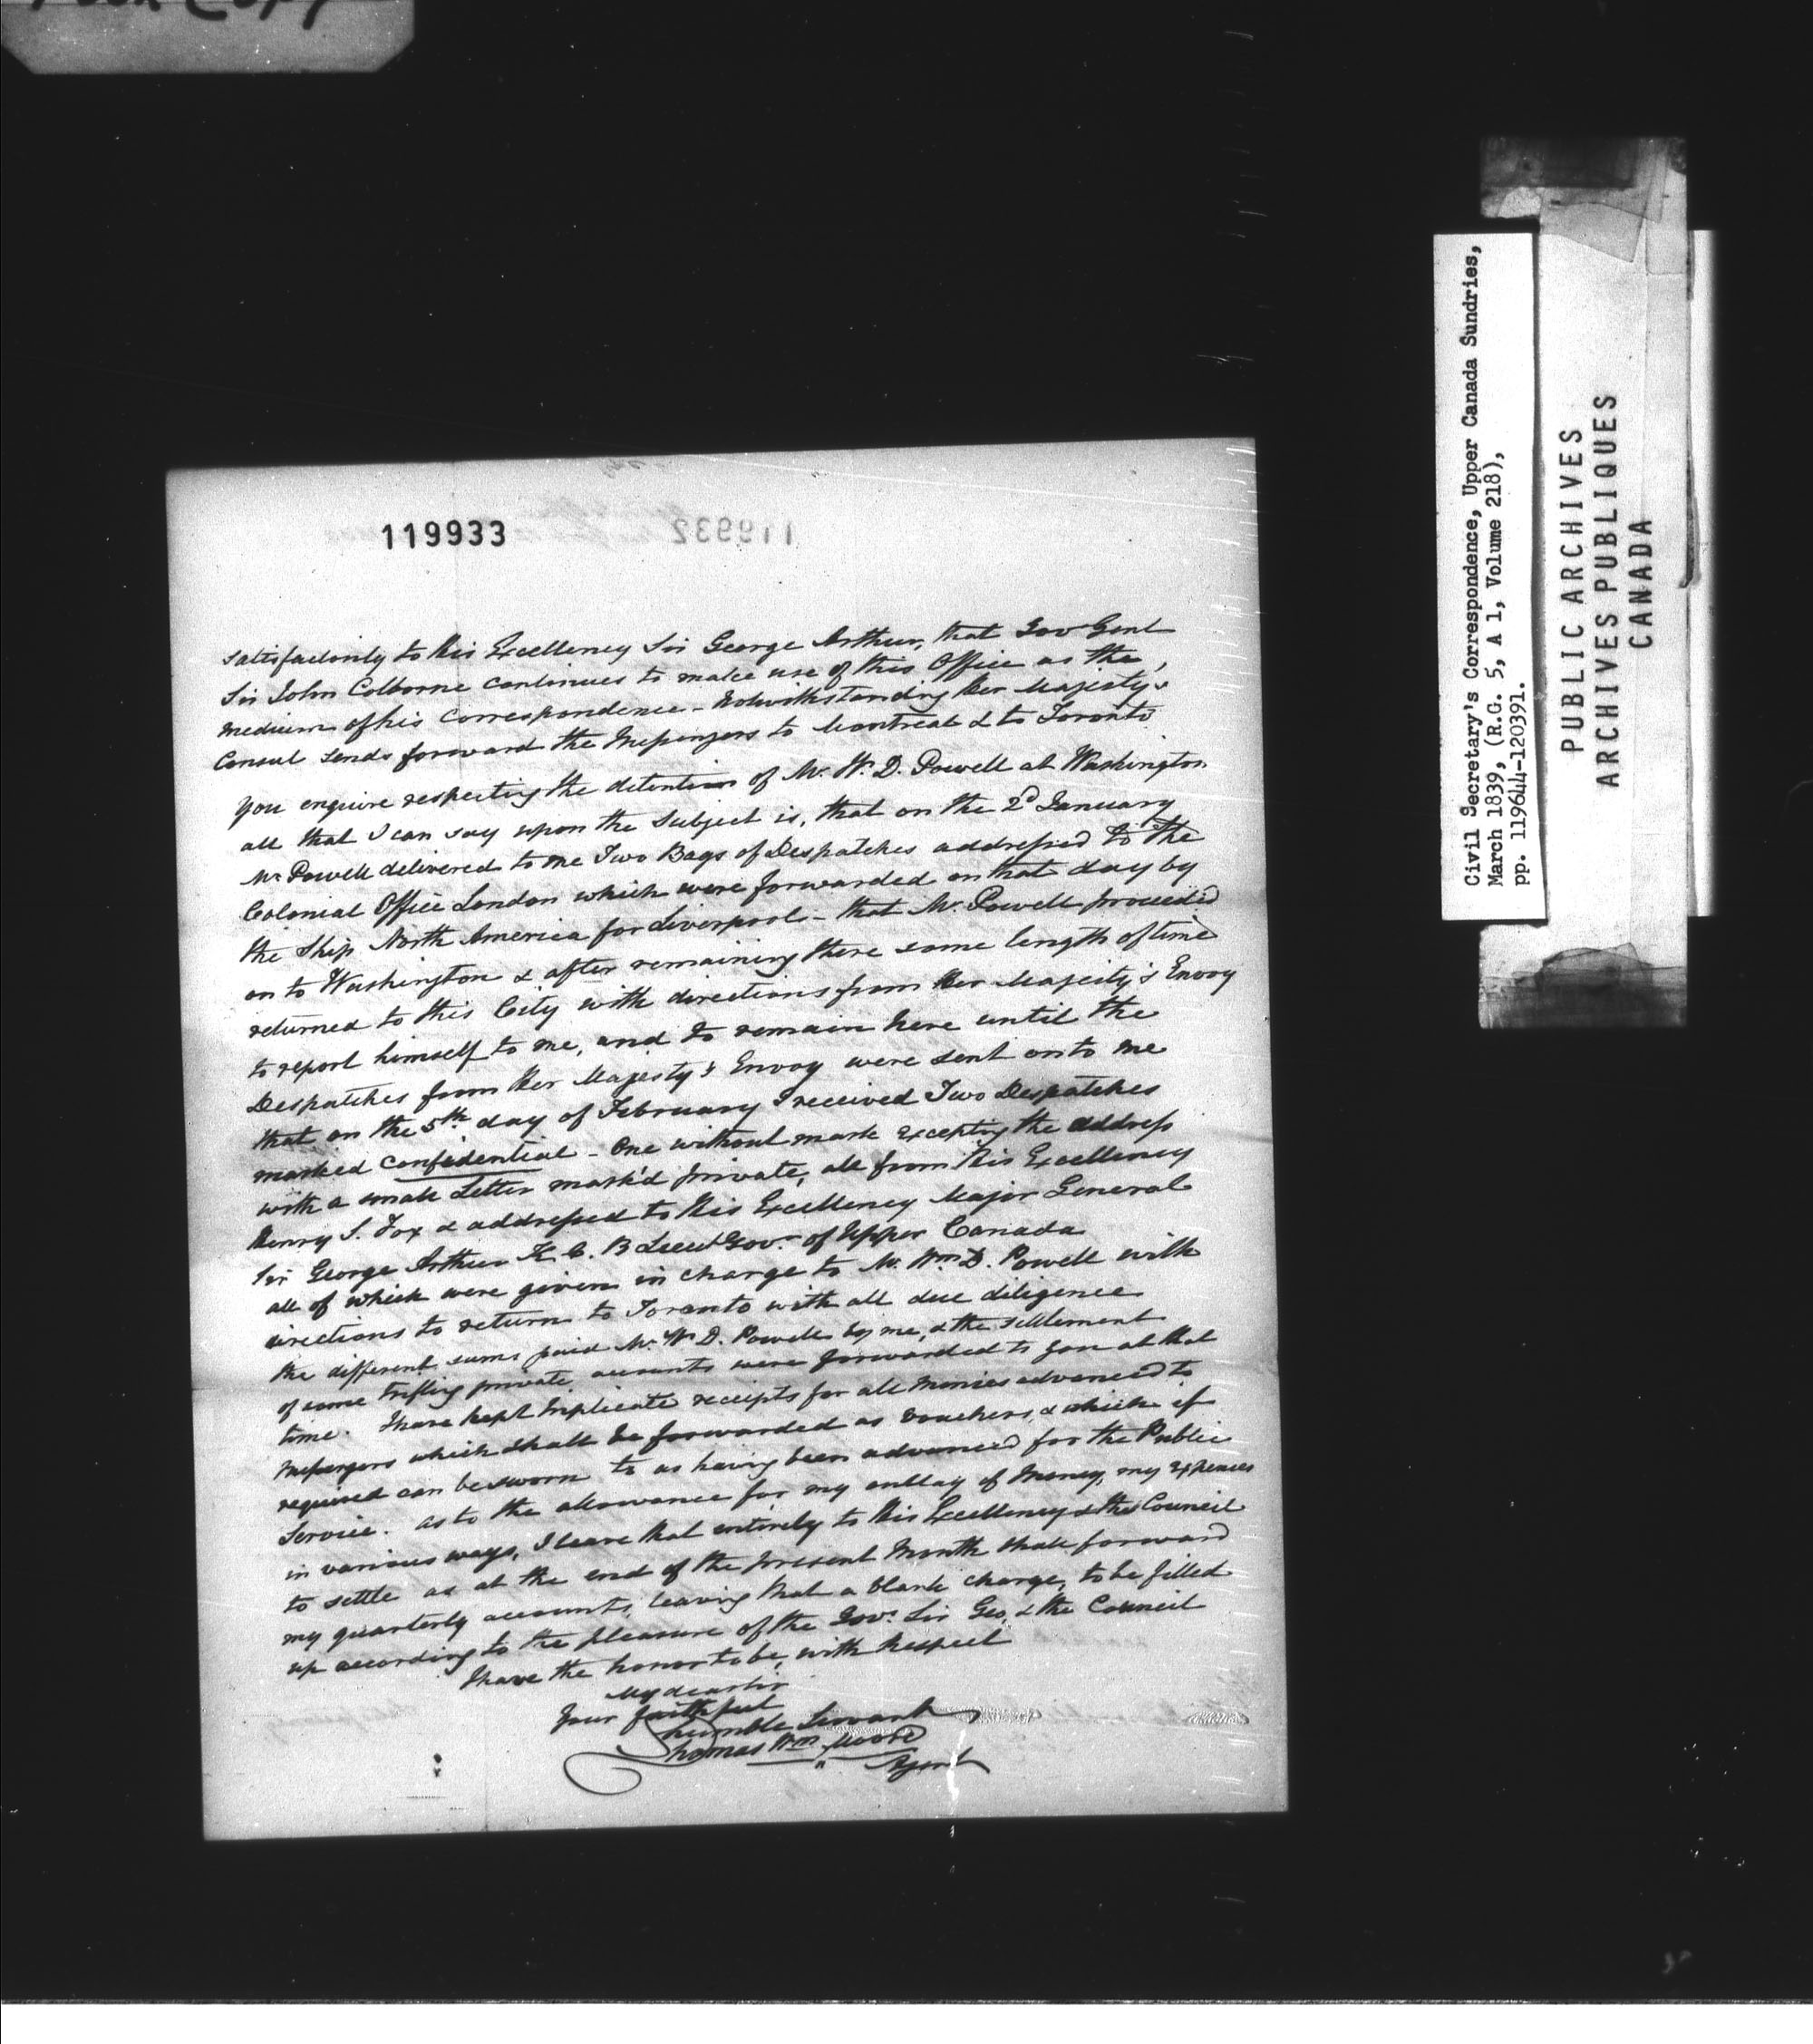 119933
satisfactorily to His Excellency Sir George Arthur, that Gov Genl
Sir John Colborne continues to make use of this Office as the,
medium of his correspondence - Notwithstanding Her Majesty's
Consul sends forward the Messengers to Montreal & to Toronto
You enquire respecting the detention of Mr. Wm. D. Powell at Washington
all that I can say upon the subject is, that on the 2d January
Mr Powell delivered to me Two Bags of Despatches addressed to the
Colonial Office London which were forwarded on that day by
the Ship North America for Liverpool - that Mr. Powell proceeded
on to Washington & after remaining there some length of time
returned to this City with directions from Her Majesty's Envoy
to report himself to me, and to remain here until the
Despatches from Her Majesty's Envoy were sent on to me
that on the 5th day of February I received Two Despatches
marked confidential - One without mark excepting the address
with a small Letter mark'd private, all from His Excellency
Henry S. Fox & addressed to His Excellency Major General
Sir George Arthur K. C. B Lieut Govr. of Upper Canada
all of which were given in charge to Mr. Wm. D. Powell with
directions to return to Toronto with all due diligence
the different sums paid Mr. Wm D. Powell by me, & the settlement
of some trifling private accounts were forwarded to you at that
time. I have kept triplicate receipts for all monies advanced to
Messengers which shall be forwarded as vouchers, & which if
required can be sworn to as having been advanced for the Public
Service. as to the allowance for my outlay of Money, my expences
in various ways, I leave that entirely to His Excellency & the Council
to settle as at the end of the present Month shall forward
my quarterly accounts, leaving that a blank charge, to be filled
up according to the pleasure of the Govr. Sir Geo, & the Council
I have the honor to be, with Respect
My dear Sir
Your faithful
humble Servant
Thomas Wm. Moore
Agent
Civil Secretary's Correspondence, Upper Canada Sundries,
March 1839, (R.G. 5, A 1, Volume 218),
pp. 119644-120391.
PUBLIC ARCHIVES
ARCHIVES PUBLIQUES
CANADA